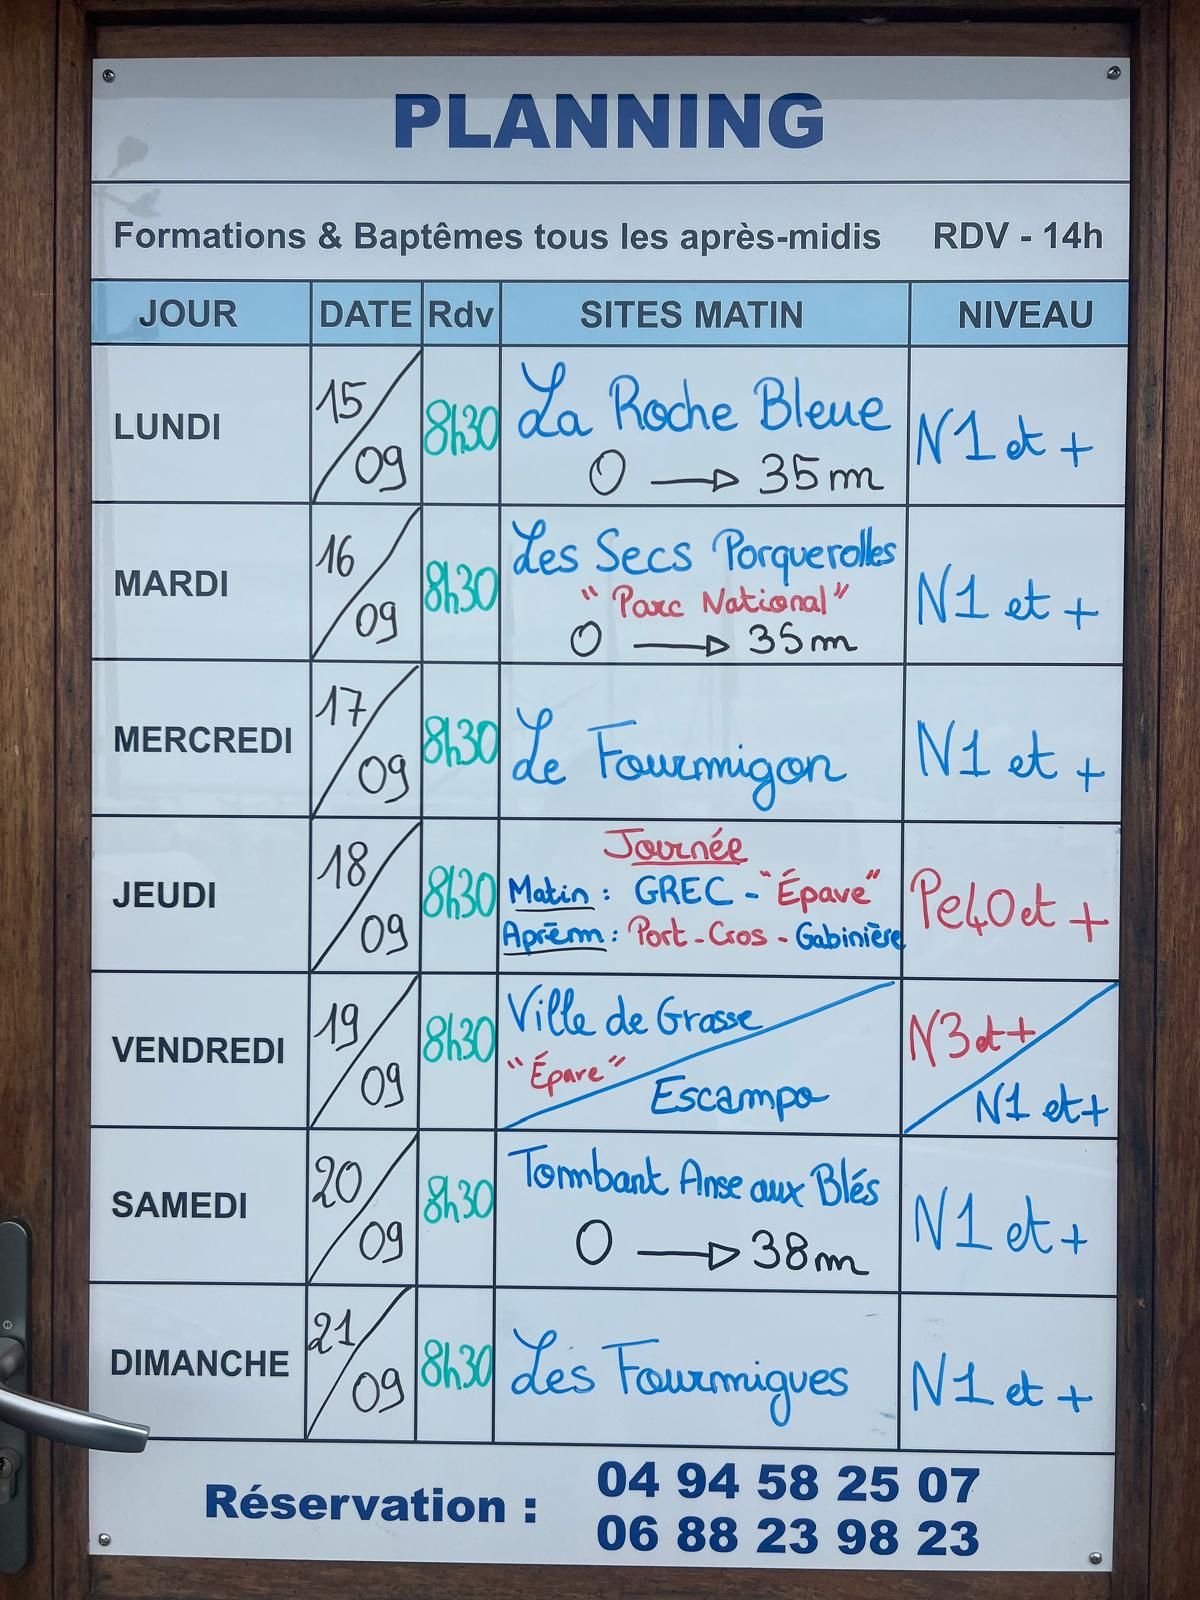 PLANNING
Formations & Baptêmes tous les après-midis RDV - 14h
JOUR DATE Rdv SITES MATIN NIVEAU
LUNDI 15/09 8h30 La Roche Bleue N1 et +
O → 35m
MARDI 16/09 8h30 Les Secs Porquerolles N1 et +
"Parc National"
O → 35m
MERCREDI 17/09 8h30 Le Fourmigon N1 et +
JEUDI 18/09 8h30 Journée Pe40 et +
Matin : GREC - "Épave"
Aprèm : Port-Cros - Gabinière
VENDREDI 19/09 8h30 Ville de Grasse N3 et +
"Épave"
Escampo N1 et +
SAMEDI 20/09 8h30 Tombant Anse aux Blés N1 et +
O → 38m
DIMANCHE 21/09 8h30 Les Fourmigues N1 et +
Réservation : 04 94 58 25 07
06 88 23 98 23